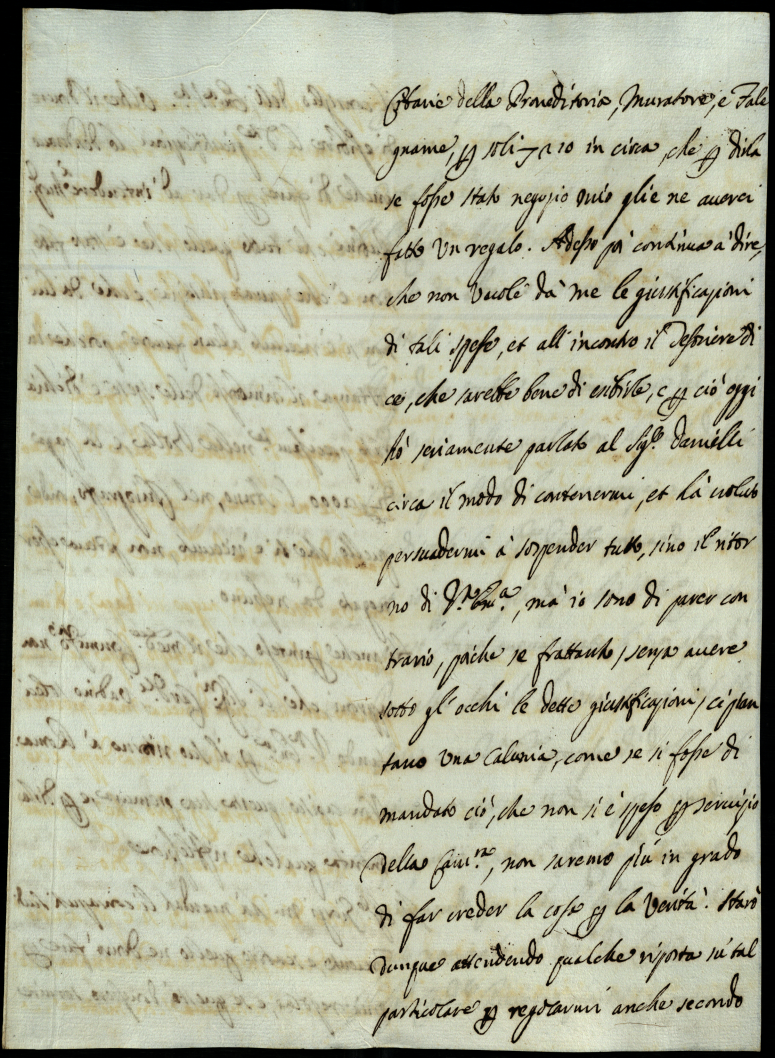 della Proveditoria, Muratore, e Fale
gname, soli 210 in circa, che dirla
se fosse stato negozio mio glie ne averei
fatto un regalo. Adesso poi continua à dire,
che non vuole dà me le giustificazioni
di tali spese, et all'incontro il Tesoriere di
ce, che sarebbe bene di esibirle, e ciò oggi
hò seriamente parlato al Sigr. Danielli
circa il modo di contenermi, et hà voluto
persuadermi à sospender tutto, sino il ritor
no di V. Emza., mà io sono di parer con
trario, poiche se frattanto, senza avere
sotto gl'occhi le dette giustificazioni, ci pian
tano una Calunia, come se si fosse di
mandato ciò, che non si è speso servizio
della, non saremo più in grado
di far creder la cosa la verità. Starò
dunque attendendo qualche risposta sù tal
particolare regolarmi anche secondo